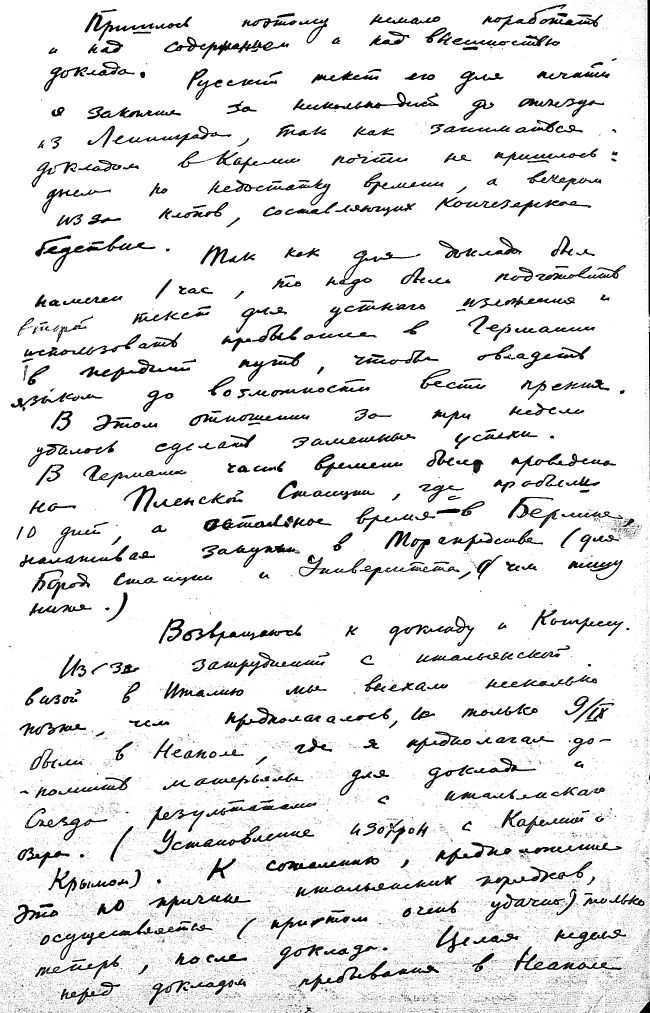 Пришлось поэтому немало поработать
и над содержанием и над внешностью
доклада. Русский текст его для печати
я закончил за несколько дней до отъезда
из Ленинграда, так как заниматься
докладом в Карелии почти не пришлось:
днем по недостатку времени, а вечером
из за клопов, составляющих Кончезерское
бедствие. Так как для доклада был
намечен 1 час, то надо было подготовить
второй текст для устного изложения и
использовать пребывание в Германии
в передний путь, чтобы овладеть
языком до возможности вести прения.
В этом отношении за три недели
удалось сделать заметные успехи.
В Германии часть времени была проведена
на Пленской Станции, где пробыли
10 дней, а остальное время в Берлине,
налаживая закупки в Торгпредстве (для
Бород. Станции и Университета, о чем пишу
ниже.)
Возвращаюсь к докладу и Конгрессу.
Из-за затруднений с итальянской
визой в Италию мы выехали несколько
позже, чем предполагалось, и только 9/IX
были в Неаполе, где я предполагал до-
полнить материалы для доклада и
Съезда результатами с итальянского
озера. (Установление изохрон с Карелией и
Крымом). К сожалению, предположение
это по причине итальянских порядков,
осуществляется (притом очень удачно) только
теперь, после доклада. Целая неделя
перед докладом пребывания в Неаполе